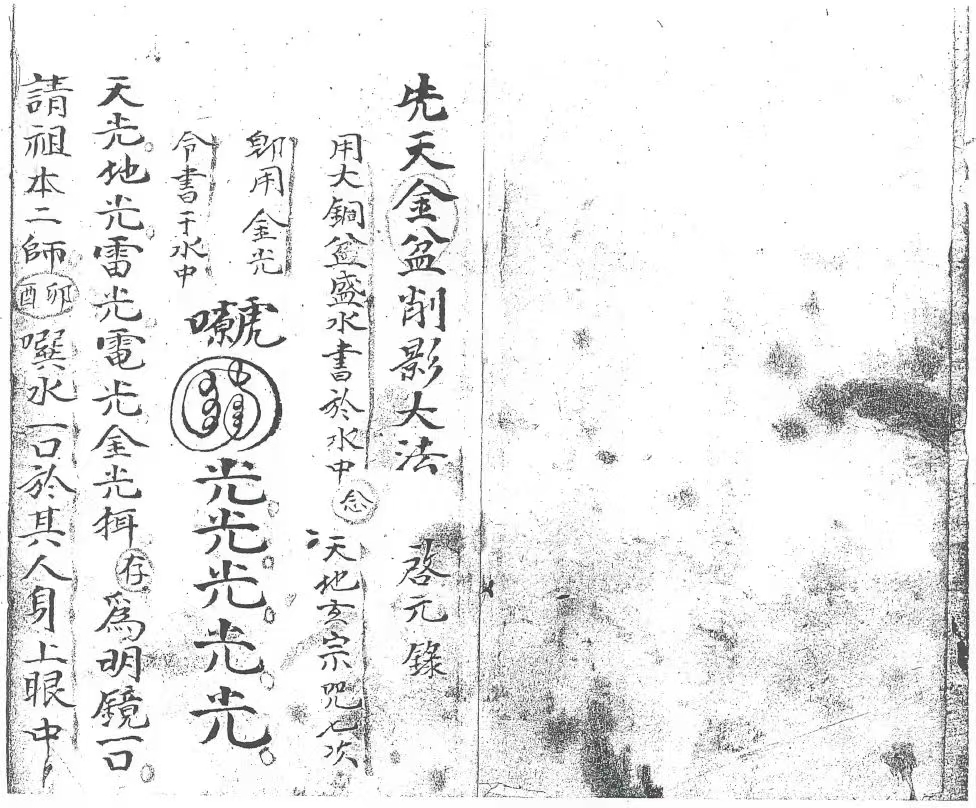 先天金盆削影大法 啓元錄
用大銅盆盛水書於水中念天地玄宗咒七次
卽用金光
令書于水中
光光光光光
天光地光雷光電光金光揖存為明鏡一口
請祖本二師卯酉噀水一口於其人身上眼中